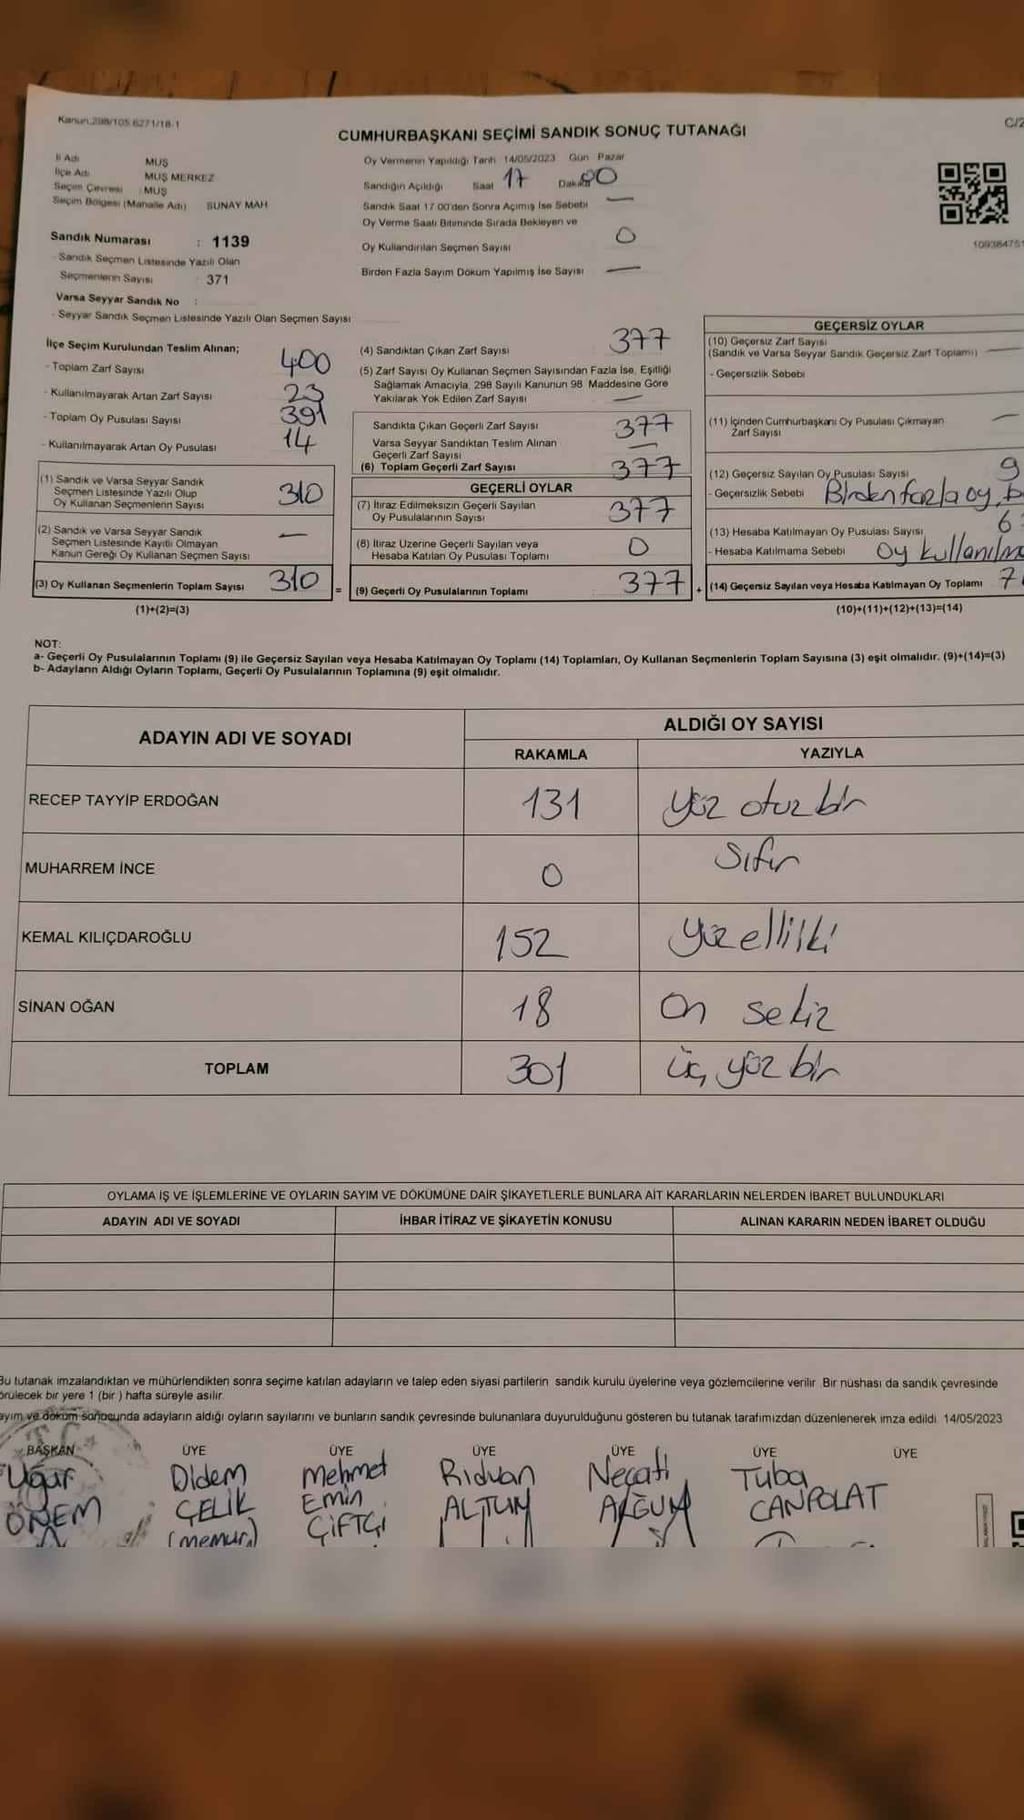 Kanun.298/105 6271/18-1
CUMHURBAŞKANI SEÇİMİ SANDIK SONUÇ TUTANAĞI
C/2
İl Adı MUŞ
İlçe Adı MUŞ MERKEZ
Seçim Çevresi : MUŞ
Seçim Bölgesi (Mahalle Adı) SUNAY MAH
Sandık Numarası : 1139
Sandık Seçmen Listesinde Yazılı Olan
Seçmenlerin Sayısı : 371
Varsa Seyyar Sandık No :
Seyyar Sandık Seçmen Listesinde Yazılı Olan Seçmen Sayısı
Oy Vermenin Yapıldığı Tarih 14/05/2023 Gün Pazar
Sandığın Açıldığı Saat 17 Dakika 00
Sandık Saat 17:00'den Sonra Açılmış İse Sebebi —
Oy Verme Saati Bitiminde Sırada Bekleyen ve
Oy Kullandırılan Seçmen Sayısı 0
Birden Fazla Sayım Döküm Yapılmış İse Sayısı —
İlçe Seçim Kurulundan Teslim Alınan;
- Toplam Zarf Sayısı 400
- Kullanılmayarak Artan Zarf Sayısı 23
- Toplam Oy Pusulası Sayısı 391
- Kullanılmayarak Artan Oy Pusulası 14
(1) Sandık ve Varsa Seyyar Sandık
Seçmen Listesinde Yazılı Olup
Oy Kullanan Seçmenlerin Sayısı 310
(2) Sandık ve Varsa Seyyar Sandık
Seçmen Listesinde Kayıtlı Olmayan
Kanun Gereği Oy Kullanan Seçmen Sayısı —
(3) Oy Kullanan Seçmenlerin Toplam Sayısı 310 =
(1)+(2)=(3)
(4) Sandıktan Çıkan Zarf Sayısı 377
(5) Zarf Sayısı Oy Kullanan Seçmen Sayısından Fazla İse, Eşitliği
Sağlamak Amacıyla, 298 Sayılı Kanunun 98. Maddesine Göre
Yakılarak Yok Edilen Zarf Sayısı —
Sandıkta Çıkan Geçerli Zarf Sayısı 377
Varsa Seyyar Sandıktan Teslim Alınan
Geçerli Zarf Sayısı —
(6) Toplam Geçerli Zarf Sayısı 377
GEÇERLİ OYLAR
(7) İtiraz Edilmeksizin Geçerli Sayılan
Oy Pusulalarının Sayısı 377
(8) İtiraz Üzerine Geçerli Sayılan veya
Hesaba Katılan Oy Pusulası Toplamı 0
(9) Geçerli Oy Pusulalarının Toplamı 377 +
GEÇERSİZ OYLAR
(10) Geçersiz Zarf Sayısı
(Sandık ve Varsa Seyyar Sandık Geçersiz Zarf Toplamı) —
- Geçersizlik Sebebi
(11) İçinden Cumhurbaşkanı Oy Pusulası Çıkmayan
Zarf Sayısı —
(12) Geçersiz Sayılan Oy Pusulası Sayısı 9
- Geçersizlik Sebebi Birden fazla oy,
(13) Hesaba Katılmayan Oy Pusulası Sayısı
- Hesaba Katılmama Sebebi oy kullanılma
(14) Geçersiz Sayılan veya Hesaba Katılmayan Oy Toplamı
(10)+(11)+(12)+(13)=(14)
NOT:
a- Geçerli Oy Pusulalarının Toplamı (9) ile Geçersiz Sayılan veya Hesaba Katılmayan Oy Toplamı (14) Toplamları, Oy Kullanan Seçmenlerin Toplam Sayısına (3) eşit olmalıdır. (9)+(14)=(3)
b- Adayların Aldığı Oyların Toplamı, Geçerli Oy Pusulalarının Toplamına (9) eşit olmalıdır.
ADAYIN ADI VE SOYADI ALDIĞI OY SAYISI
RAKAMLA YAZIYLA
RECEP TAYYİP ERDOĞAN 131 yüz otuz bir
MUHARREM İNCE 0 Sıfır
KEMAL KILIÇDAROĞLU 152 yüz elli iki
SİNAN OĞAN 18 On sekiz
TOPLAM 301 üç yüz bir
OYLAMA İŞ VE İŞLEMLERİNE VE OYLARIN SAYIM VE DÖKÜMÜNE DAİR ŞİKAYETLERLE BUNLARA AİT KARARLARIN NELERDEN İBARET BULUNDUKLARI
ADAYIN ADI VE SOYADI İHBAR İTİRAZ VE ŞİKAYETİN KONUSU ALINAN KARARIN NEDEN İBARET OLDUĞU
Bu tutanak imzalandıktan ve mühürlendikten sonra seçime katılan adayların ve talep eden siyasi partilerin sandık kurulu üyelerine veya gözlemcilerine verilir. Bir nüshası da sandık çevresinde
örülecek bir yere 1 (bir) hafta süreyle asılır.
ayım ve döküm sonucunda adayların aldığı oyların sayılarını ve bunların sandık çevresinde bulunanlara duyurulduğunu gösteren bu tutanak tarafımızdan düzenlenerek imza edildi. 14/05/2023
BAŞKAN ÜYE ÜYE ÜYE ÜYE ÜYE ÜYE
Uğur Didem Mehmet Rıdvan Necati Tuba
ÖNEM ÇELİK Emin ALTUN AKGÜN CANPOLAT
(memur) ÇİFTÇİ